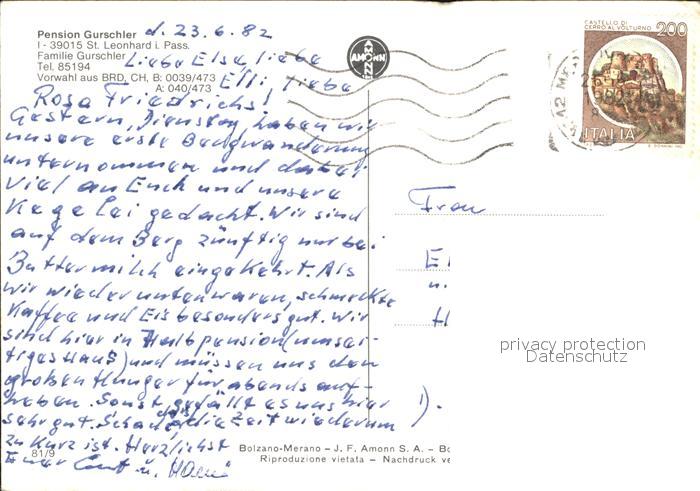 Pension Gurschler
I - 39015 St. Leonhard i. Pass.
Familie Gurschler
Tel. 85194
Vorwahl aus BRD, CH, B: 0039/473
A: 040/473
d. 23.6.82
Liebe Elsa, liebe
Elli, liebe
Rosa Friedrichs!
Gestern, Dienstag haben wir
unsere erste Bergwanderung
unternommen und dabei
viel an Euch und unsere
gedacht. Wir sind
auf dem Berg zünftig nur bei
Buttermilch eingekehrt. Als
wir wieder unten waren, schmeckte
Kaffee und Eis besonders gut. Wir
sind hier in Halbpension (
) und müssen uns den
großen Hunger für abends auf-
heben. Sonst gefällt es uns hier
sehr gut. Schade, daß die Zeit wiederum
zu kurz ist. Herzlichst
Euer u.
81/9
AMONN
CASTELLO DI
CERRO AL VOLTURNO
200
ITALIA
Frau
El
u.
H
!).
privacy protection
Datenschutz
Bolzano-Merano – J. F. Amonn S. A. – Bo
Riproduzione vietata – Nachdruck ve